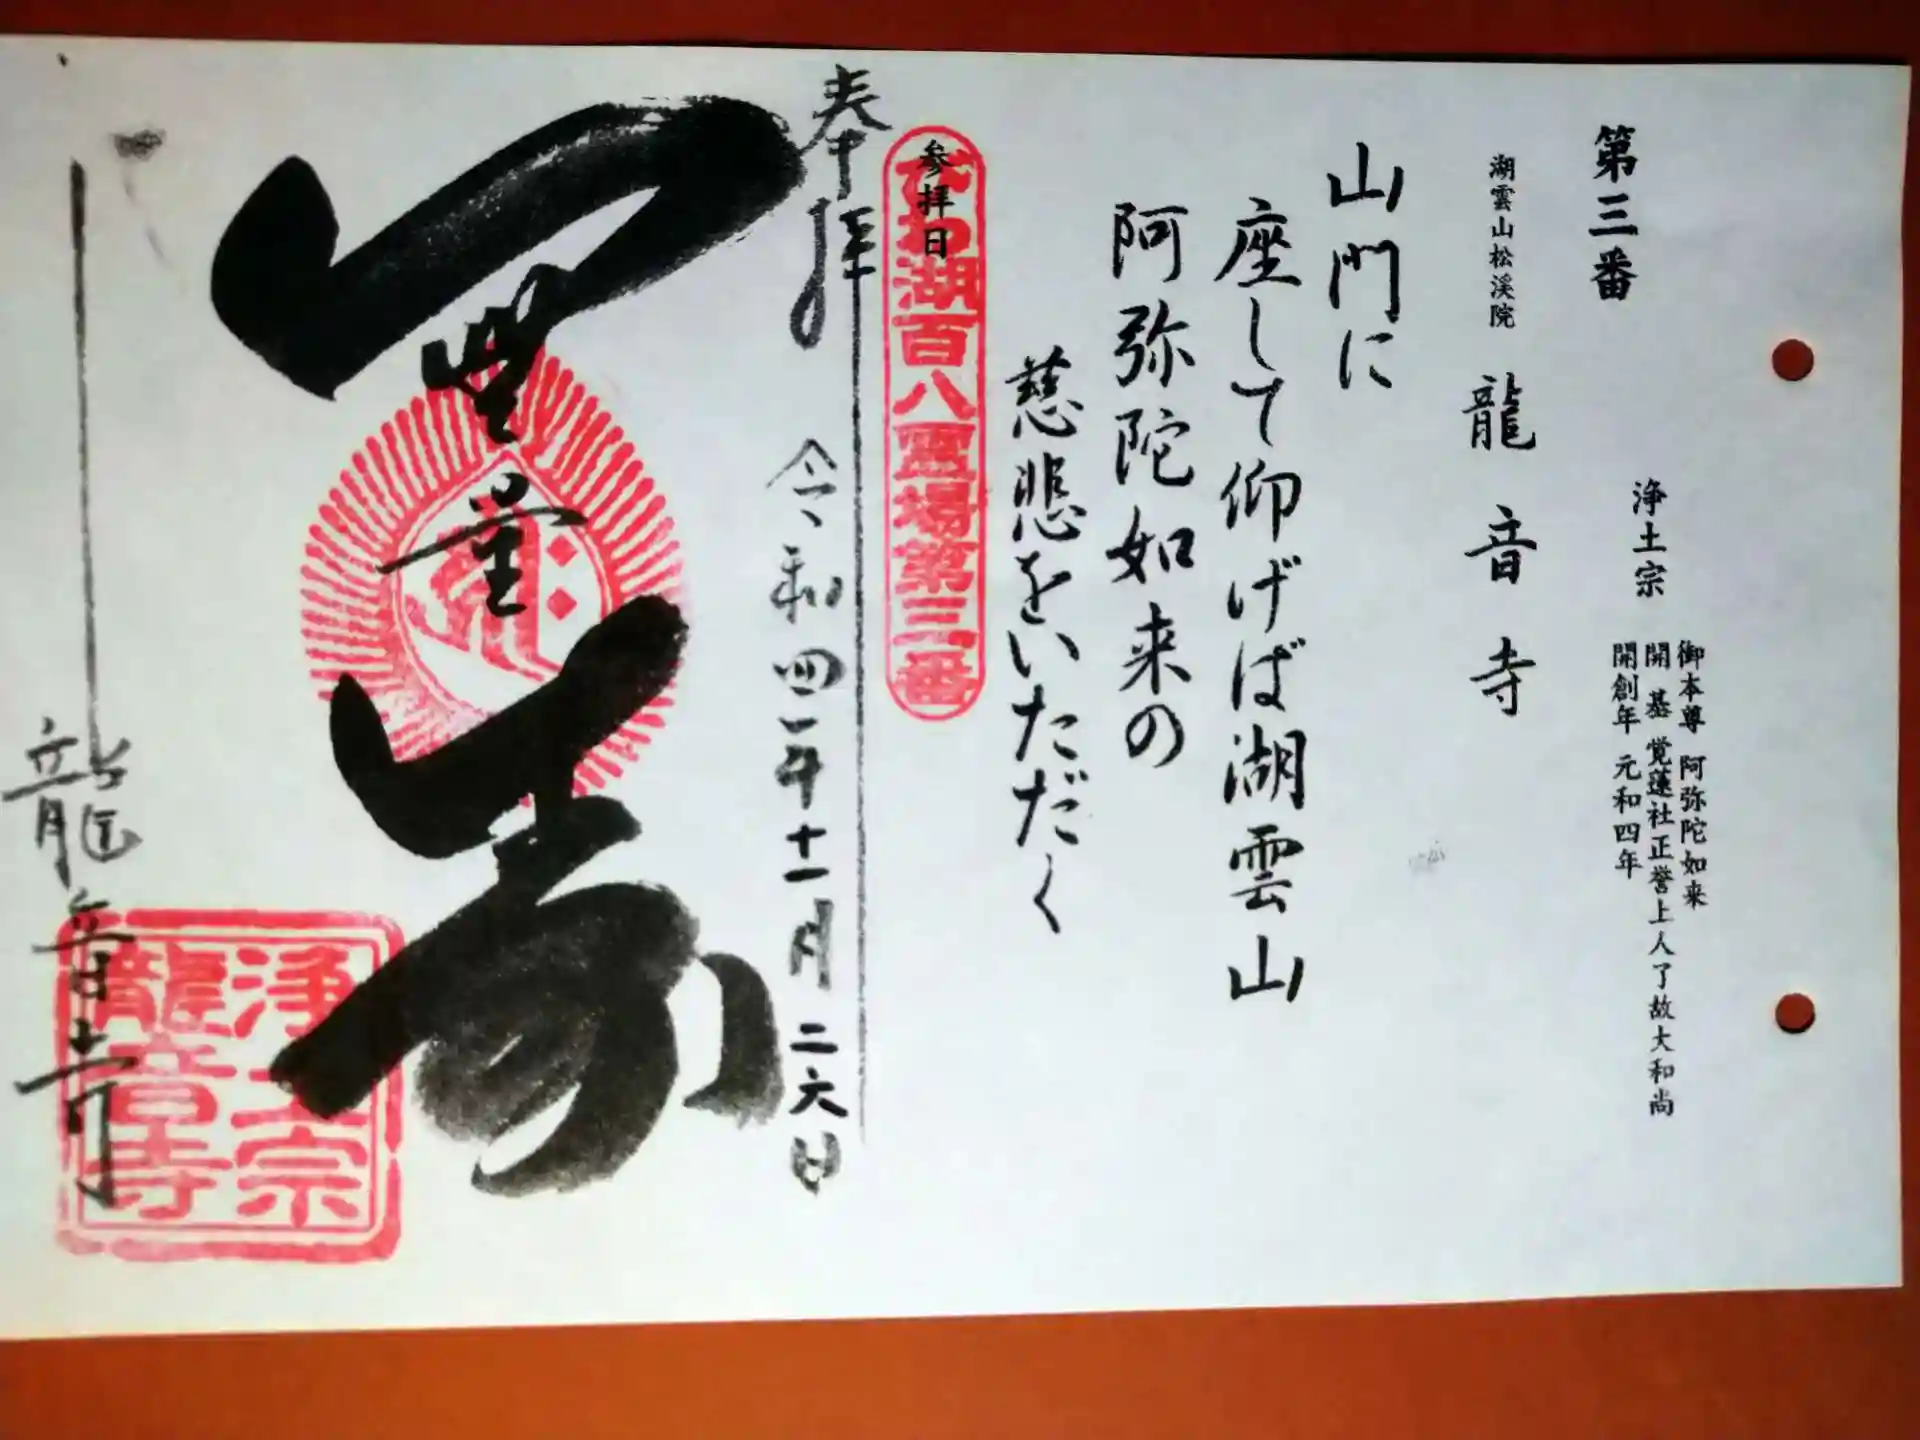 第三番
浄土宗
御本尊 阿弥陀如来
開基 覚蓮社正誉上人了故大和尚
開創年 元和四年
湖雲山松渓院 龍音寺
山門に
座して仰げば湖雲山
阿弥陀如来の
慈悲をいただく
参拝日
びわ湖百八霊場第三番
奉拝
令和四年十一月二六日
無量寿
龍音寺
浄土宗
龍音寺